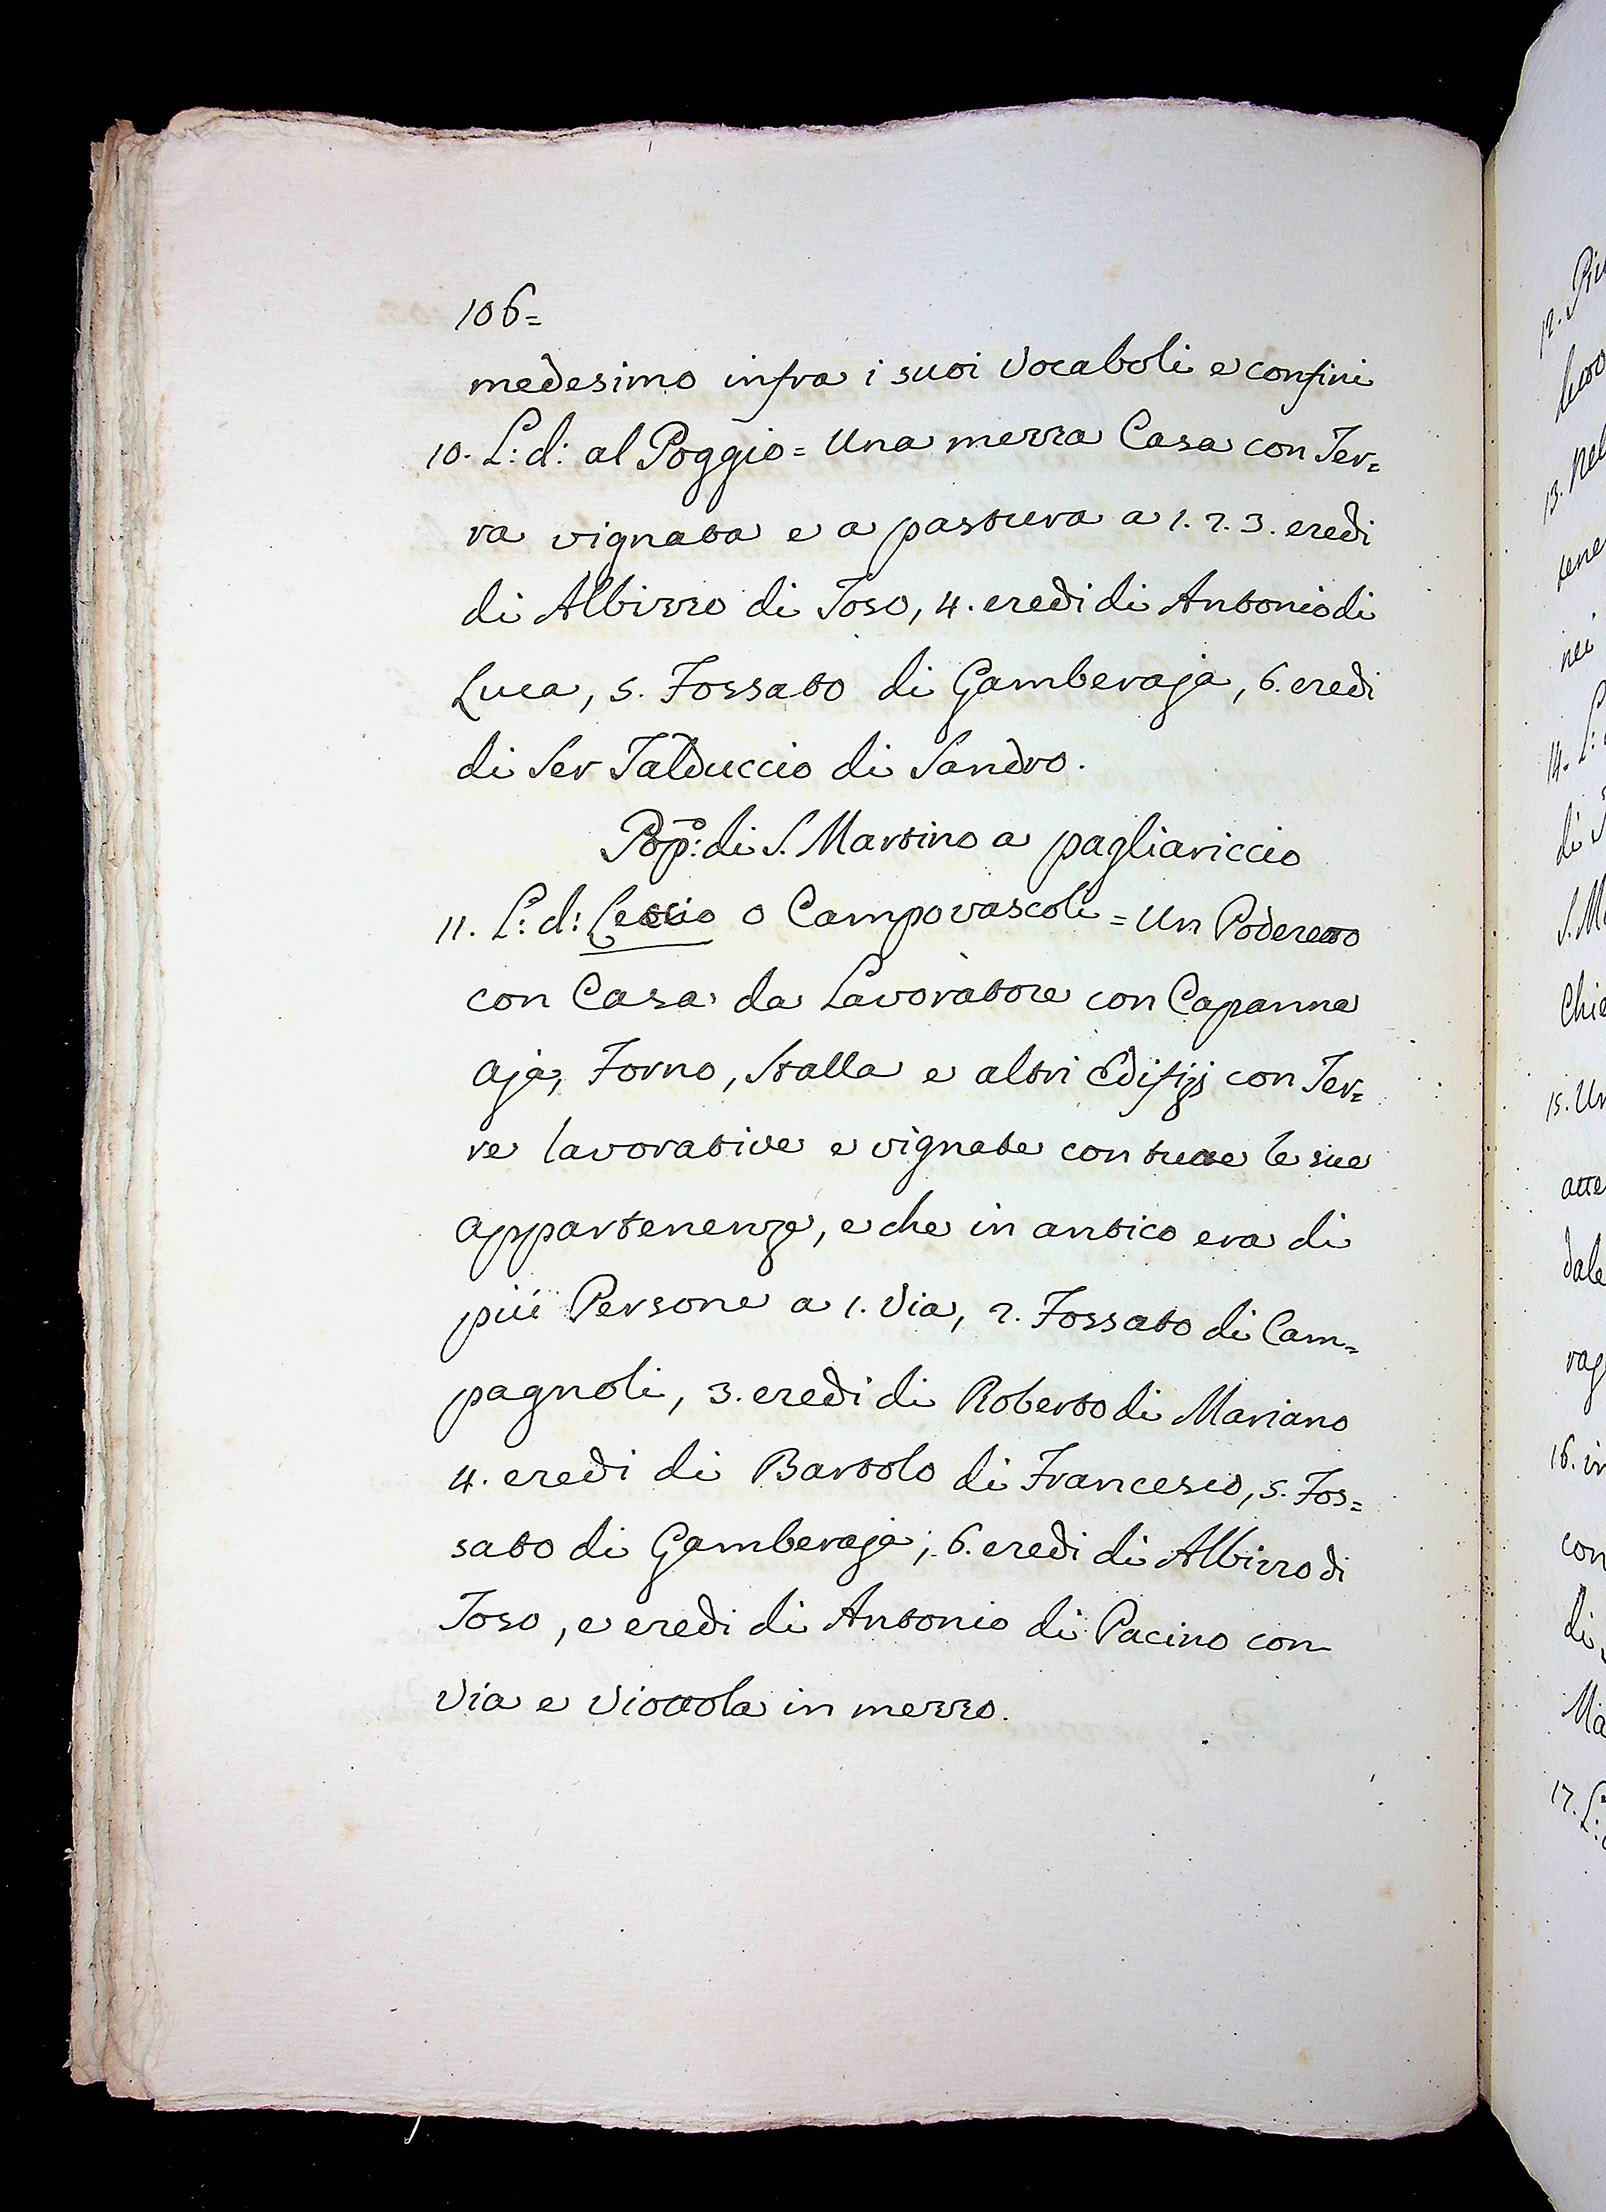 106=
medesimo infra i suoi Vocaboli e confini
10. L: d: al Poggio = Una mezza Casa con Ter=
ra vignata e a pastura a 1. 2. 3. eredi
di Albizzo di Toso, 4. eredi di Antonio di
Luca, 5. Fossato di Gamberaja, 6. eredi
di Ser Talduccio di Sandro.
Pop:o di S. Martino a pagliariccio
11. L: d: Leccio o Campovascoli = Un Poderetto
con Casa da Lavoratore con Capanna
Aja, Forno, Stalla e altri Edifizj con Ter=
re lavorative e vignate con tutte le sue
appartenenze, e che in antico era di
più Persone a 1. Via, 2. Fossato di Cam=
pagnoli, 3. eredi di Roberto di Mariano
4. eredi di Bartolo di Francesco, 5. Fos=
sato di Gamberaja; 6. eredi di Albizzo di
Toso, e eredi di Antonio di Pacino con
Via e Viottola in mezzo.
12.
13. Nel
14. L:
di
S. M
15. Un
16. in
con
di
Ma
17. L: